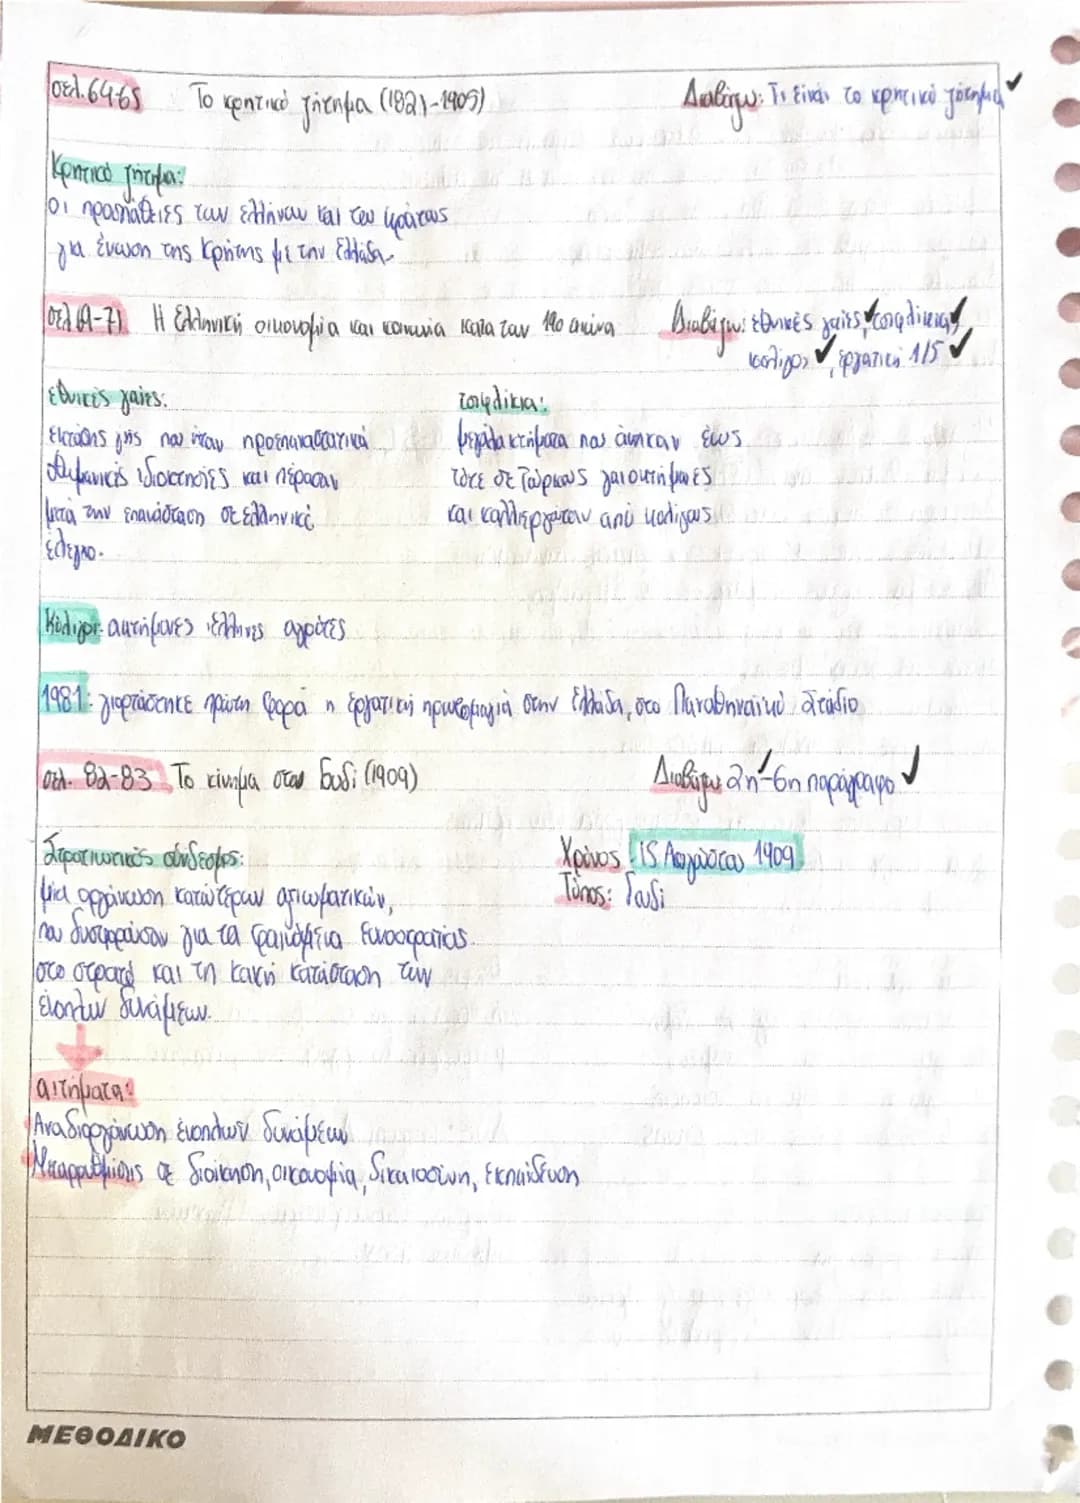 σελ. 64-65 Το κρητικό ζήτημα (1821-1905) Διαβάζω: Τι είναι το κρητικό ζήτημα ✓
Κρητικό ζήτημα:
οι προσπάθειες των ελλήνων και του κράτους
για ένωση της Κρήτης με την Ελλάδα.
σελ 69-71 Η Ελληνική οικονομία και κοινωνία κατα τον 19ο αιώνα Διαβάζω: εθνικές γαίες ✓, τσιφλίκια ✓
κολίγοι ✓, εργατική 1/5 ✓
εθνικές γαίες:
εκτάσεις γης που ήταν προεπαναστατικά
οθωμανικές ιδιοκτησίες και πέρασαν
μετά την επανάσταση σε ελληνικό
έλεγχο.
τσιφλίκια:
μεγάλα κτήματα που άνηκαν έως
τότε σε Τούρκους γαιοκτήμονες
και καλλιεργούταν από κολίγους
Κολίγοι: ακτήμονες έλληνες αγρότες
1981: γιορτάστηκε πρώτη φορά η εργατική πρωτομαγιά στην Ελλάδα, στο Παναθηναϊκό Στάδιο
σελ. 82-83 Το κίνημα στου Γουδί (1909) Διαβάζω 2η-6η παράγραφο ✓
Στρατιωτικός σύνδεσμος:
μια οργάνωση κατώτερων αξιωματικών,
που δυσφορούσαν για τα φαινόμενα ευνοιοκρατίας
στο στρατό και τη κακή κατάσταση των
ένοπλων δυνάμεων.
Χρόνος: 15 Αυγούστου 1909
Τόπος: Γουδί
αιτήματα:
Αναδιοργάνωση ένοπλων δυνάμεων
Μεταρρυθμίσεις σε διοίκηση, οικονομία, δικαιοσύνη, εκπαίδευση
ΜΕΘΟΔΙΚΟ